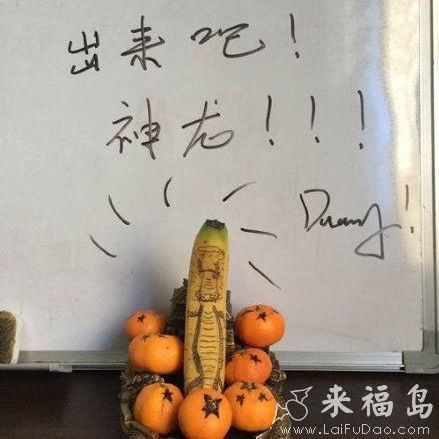 出来吧！
神龙！！！
Duang！
来福岛
www.LaiFuDao.com